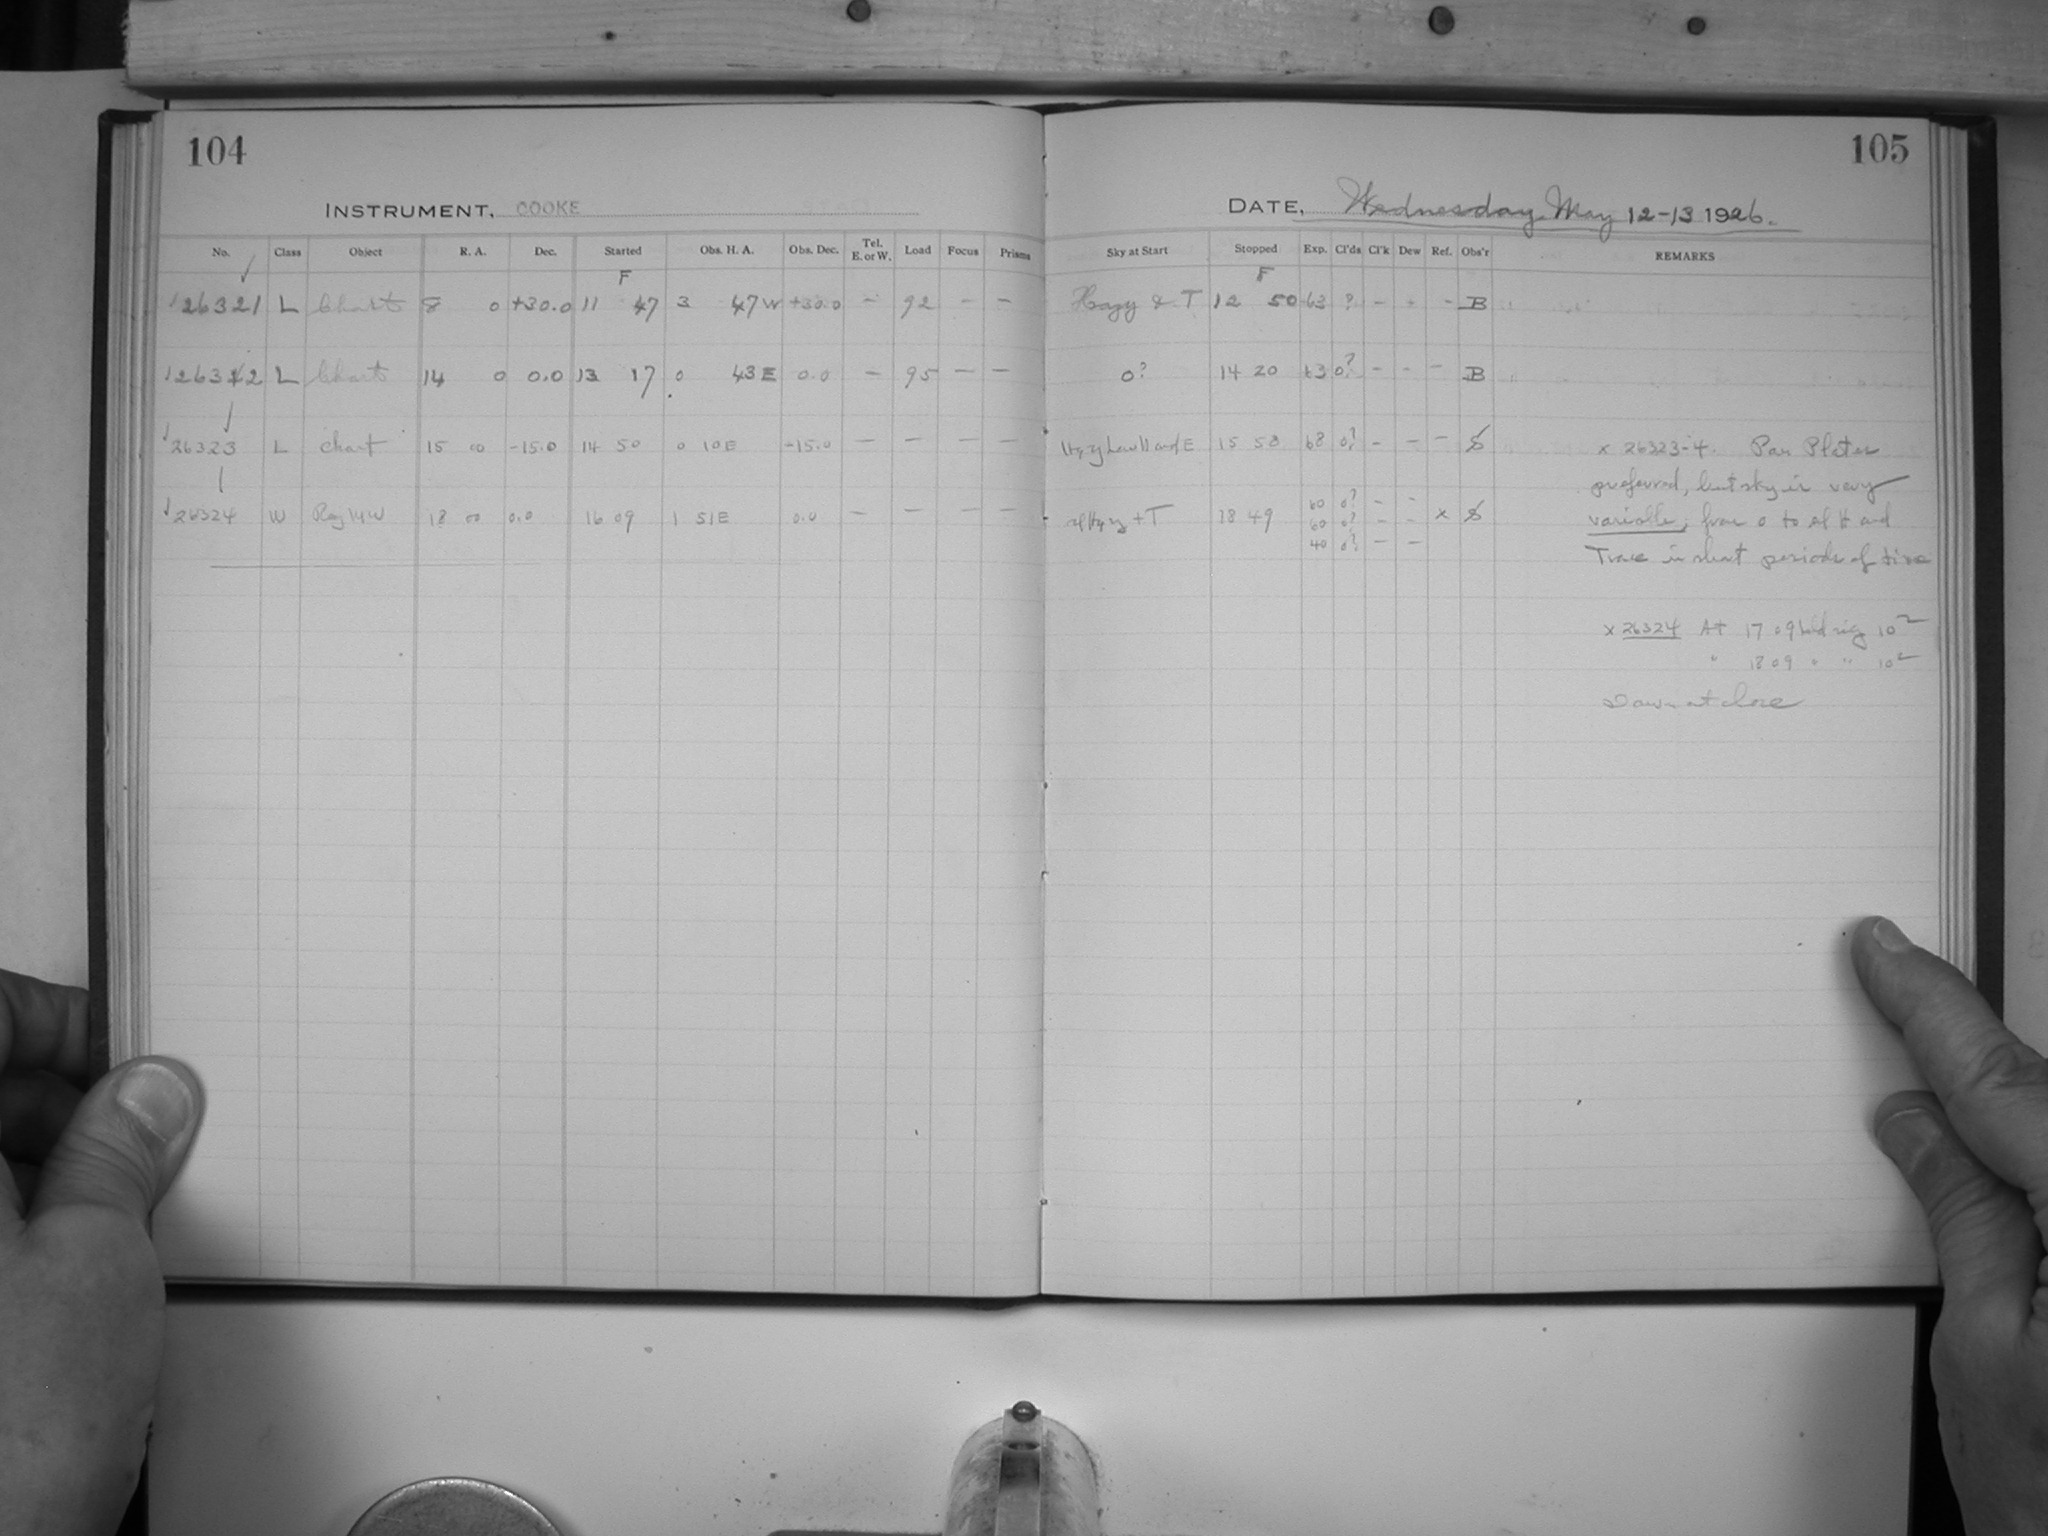 104
INSTRUMENT, COOKE
No. Class Object R. A. Dec. Started Obs. H. A. Obs. Dec. Tel. E. or W. Load Focus Prisms
F
26321 L Chart 8 0 +30.0 11 47 3 47 W +30.0 - 92 - -
26322 L Chart 14 0 0.0 13 17 0 43 E 0.0 - 95 - -
26323 L Chart 15 00 -15.0 14 50 0 10 E -15.0 - - - -
26324 W 18 00 0.0 16 09 1 51 E 0.0 - - - -
105
DATE, Wednesday May 12-13 1926.
Sky at Start Stopped Exp. Cl'ds Cl'k Dew Ref. Obs'r REMARKS
F
Hazy & T 12 50 63 ? - - - B
0? 14 20 63 0? - - - B
Hazy Low and E 15 58 68 0? - - - S x 26323-4. Pan Plates
preferred, but sky is very
60 0? - -
Hazy + T 18 49 60 0? - - x S variable, from 0 to H and
40 0? - -
Trace in short periods of time
x 26324 At 17 09 10
" 18 09 " " 10
Dawn at close